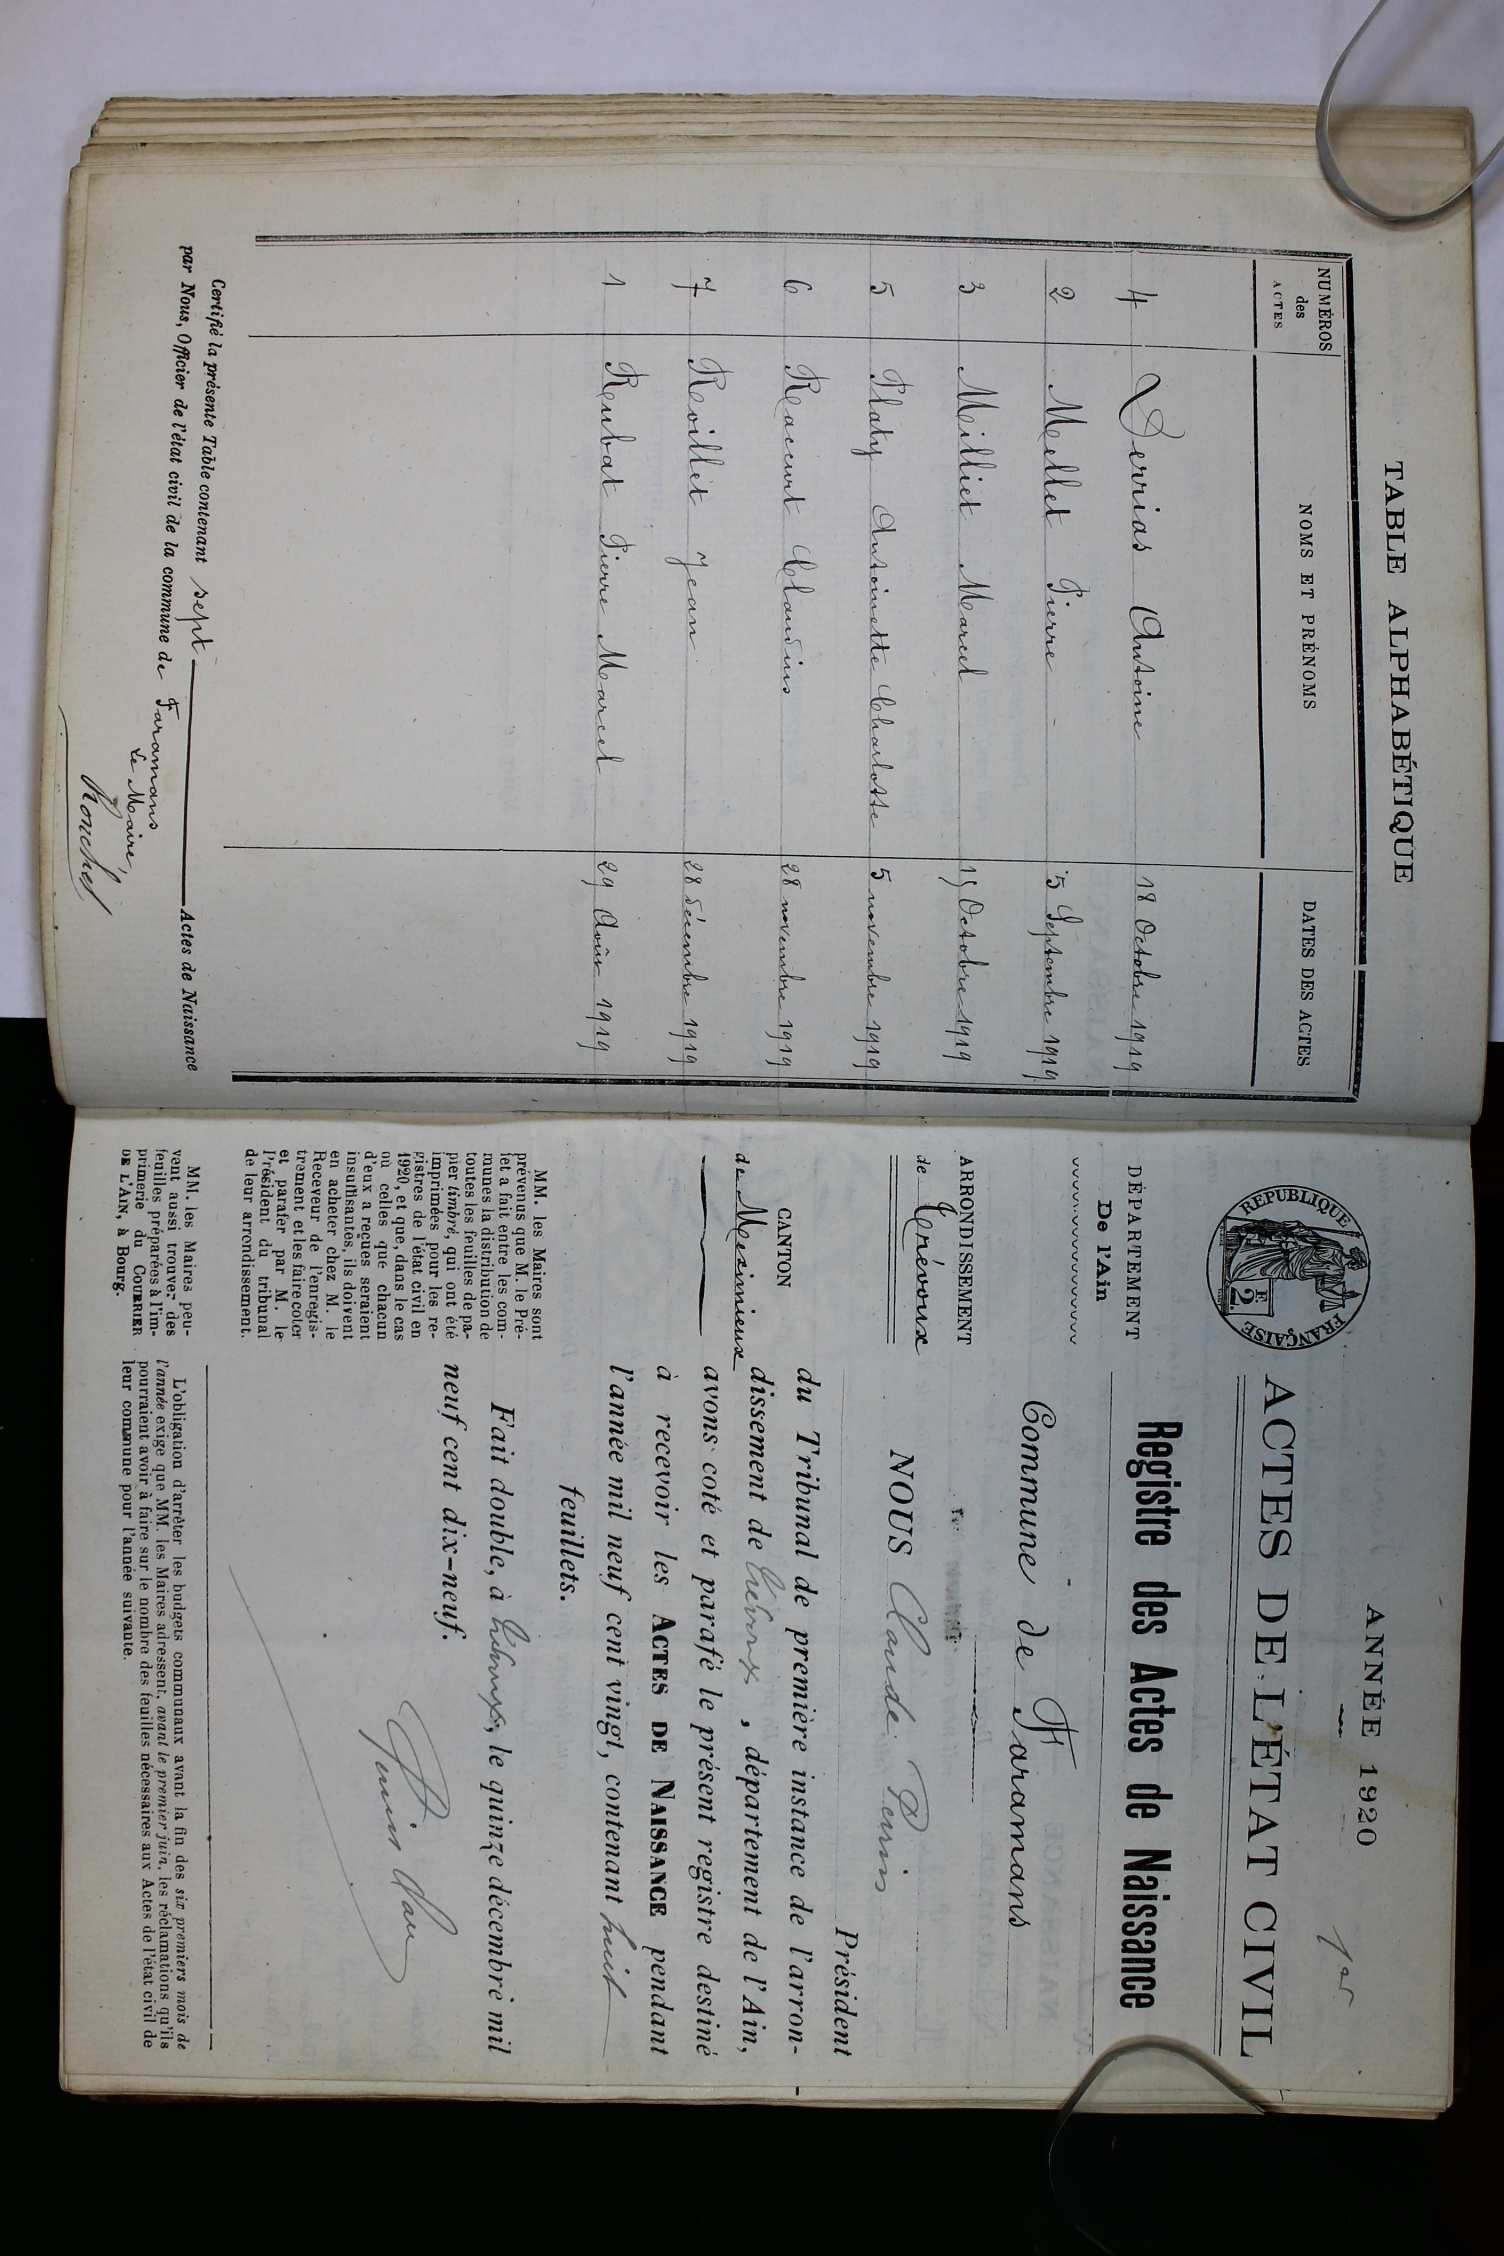 TABLE ALPHABÉTIQUE
NUMÉROS des ACTES
NOMS ET PRÉNOMS
DATES DES ACTES
4 Derrias Antoine 18 Octobre 1919
2 Mellet Pierre 5 Septembre 1919
3 Milliet Marcel 15 Octobre 1919
5 Platy Antoinette Charlotte 5 novembre 1919
6 Raccurt Claudius 28 novembre 1919
7 Revillet Jean 28 décembre 1919
1 Rubat Pierre Marcel 29 Août 1919
Certifié la présente Table contenant sept Actes de Naissance
par Nous, Officier de l'état civil de la commune de Faramans
Le Maire,
ANNÉE 1920
REPUBLIQUE FRANÇAISE
E
2.
ACTES DE L'ÉTAT CIVIL
DÉPARTEMENT
De l'Ain
Registre des Actes de Naissance
Commune de Faramans
ARRONDISSEMENT
de Trévoux
CANTON
de Meximieux
MM. les Maires sont
prévenus que M. le Pré-
fet a fait entre les com-
munes la distribution de
toutes les feuilles de pa-
pier timbré, qui ont été
imprimées pour les re-
gistres de l'état civil en
1920, et que, dans le cas
où celles que chacun
d'eux a reçues seraient
insuffisantes, ils doivent
en acheter chez M. le
Receveur de l'enregis-
trement et les faire coter
et parafer par M. le
Président du tribunal
de leur arrondissement.
MM. les Maires peu-
vent aussi trouver des
feuilles préparées à l'im-
primerie du COURRIER
DE L'AIN, à Bourg.
NOUS Claude Perrin
Président
du Tribunal de première instance de l'arron-
dissement de Trévoux, département de l'Ain,
avons coté et parafé le présent registre destiné
à recevoir les ACTES DE NAISSANCE pendant
l'année mil neuf cent vingt, contenant huit
feuillets.
Fait double, à Trévoux, le quinze décembre mil
neuf cent dix-neuf.
L'obligation d'arrêter les budgets communaux avant la fin des six premiers mois de
l'année exige que MM. les Maires adressent, avant le premier juin, les réclamations qu'ils
pourraient avoir à faire sur le nombre des feuilles nécessaires aux Actes de l'état civil de
leur commune pour l'année suivante.